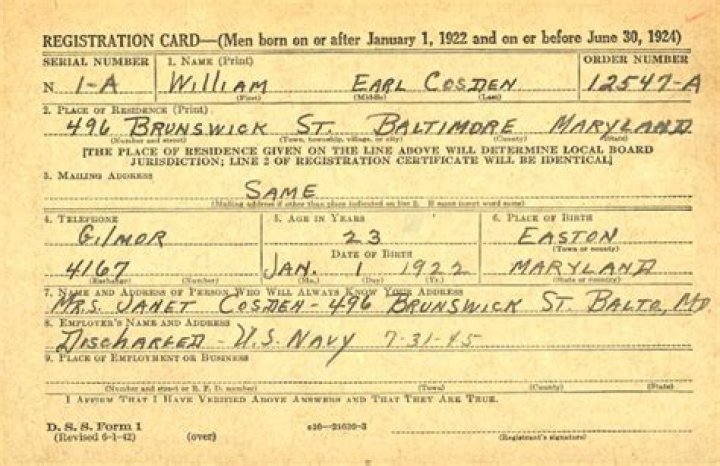 REGISTRATION CARD—(Men born on or after January 1, 1922 and on or before June 30, 1924)
SERIAL NUMBER 1. NAME (Print) ORDER NUMBER
N 1-A WILLIAM EARL COSDEN 12547-A
(First) (Middle) (Last)
2. PLACE OF RESIDENCE (Print)
496 BRUNSWICK ST. BALTIMORE MARYLAND
(Number and street) (Town, township, village, or city) (County) (State)
[THE PLACE OF RESIDENCE GIVEN ON THE LINE ABOVE WILL DETERMINE LOCAL BOARD
JURISDICTION; LINE 2 OF REGISTRATION CERTIFICATE WILL BE IDENTICAL]
3. MAILING ADDRESS
SAME
(Mailing address if other than place indicated on line 2. If same insert word same)
4. TELEPHONE 5. AGE IN YEARS 6. PLACE OF BIRTH
GILMOR 23 EASTON
DATE OF BIRTH (Town or county)
4167 JAN. 1 1922 MARYLAND
(Exchange) (Number) (Mo.) (Day) (Yr.) (State or country)
7. NAME AND ADDRESS OF PERSON WHO WILL ALWAYS KNOW YOUR ADDRESS
MRS. JANET COSDEN-496 BRUNSWICK ST. BALTO, MD
8. EMPLOYER'S NAME AND ADDRESS
DISCHARGED - U.S. NAVY 7-31-45
9. PLACE OF EMPLOYMENT OR BUSINESS
(Number and street or R. F. D. number) (Town) (County) (State)
I AFFIRM THAT I HAVE VERIFIED ABOVE ANSWERS AND THAT THEY ARE TRUE.
D. S. S. Form 1
(Revised 6-1-42) (over) (Registrant's signature)